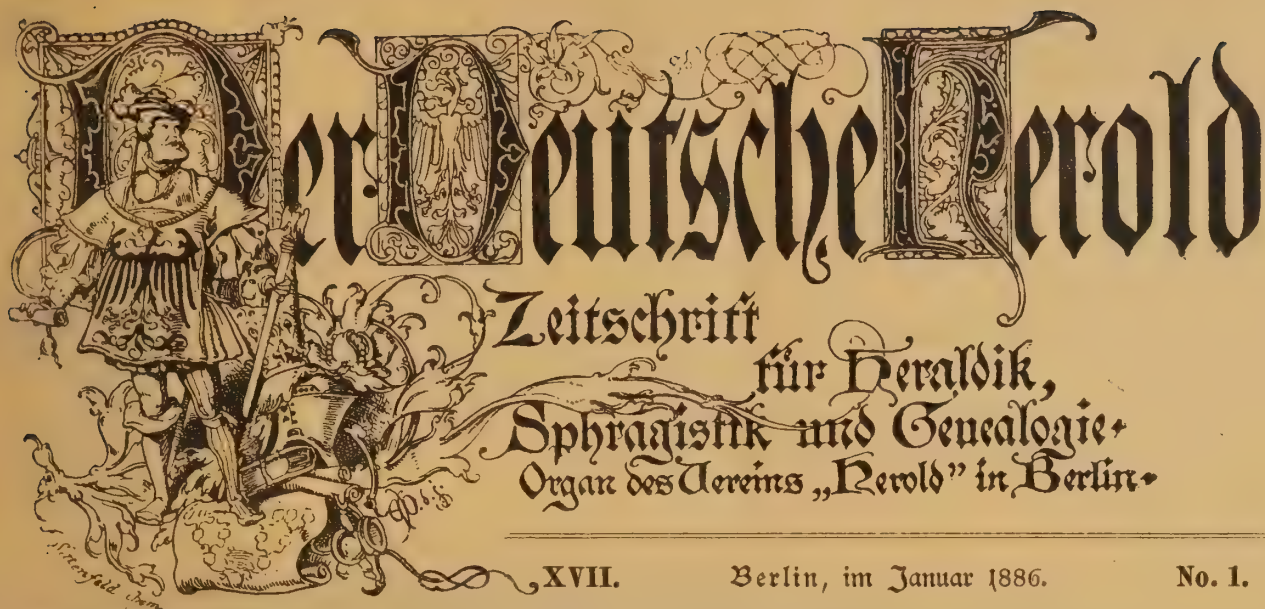 Der Deutsche Herold
Zeitschrift
für Heraldik,
Sphragistik und Genealogie.
Organ des Vereins „Herold” in Berlin.
XVII. Berlin, im Januar 1886. No. 1.